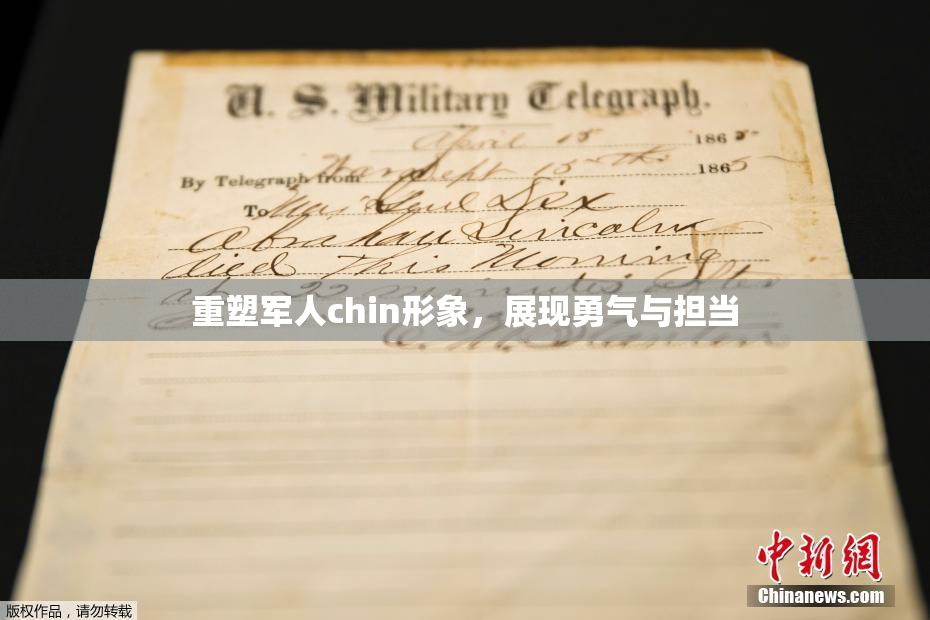 U. S. Military Telegraph.
April 15 1865
By Telegraph from War Dept 15th 1865
To Maj Genl Dix
Abraham Lincoln
died This Morning
at 22 minutes after
重塑军人chin形象，展现勇气与担当
E. M. Stanton
中新网
Chinanews.com
版权作品，请勿转载